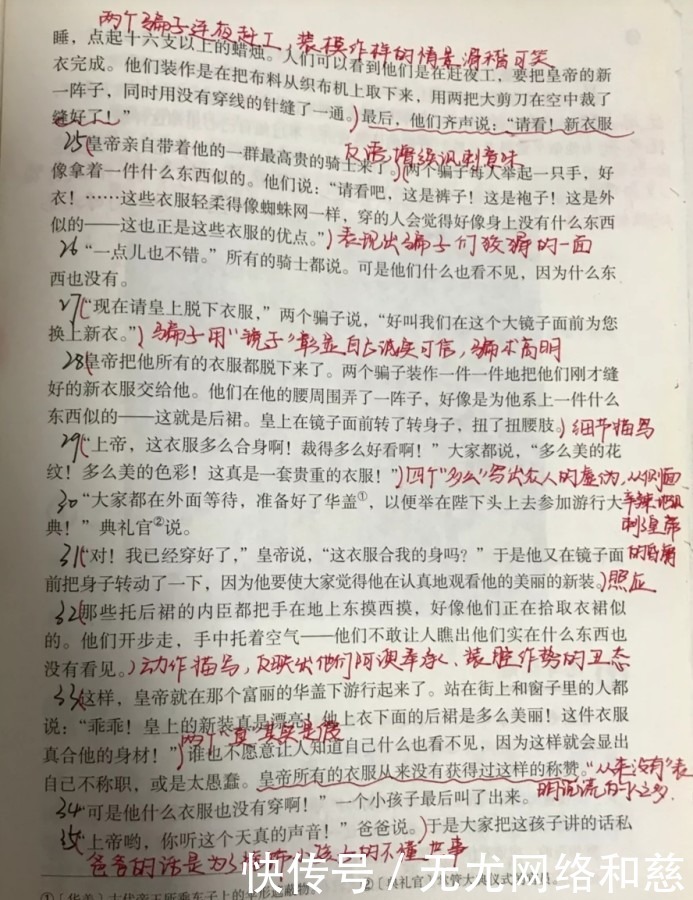 两个骗子连夜赶工,装模作样的情景滑稽可笑
睡,点起十六支以上的蜡烛。人们可以看到他们是在赶夜工,要把皇帝的新
衣完成。他们装作是在把布料从织布机上取下来,用两把大剪刀在空中裁了
一阵子,同时用没有穿线的针缝了一通。)最后,他们齐声说:“请看!新衣服
缝好了!”
反语,增强讽刺意味
25(皇帝亲自带着他的一群最高贵的骑士来了。)(两个骗子每人举起一只手,好
像拿着一件什么东西似的。他们说:“请看吧,这是裤子!这是袍子!这是外
衣!……这些衣服轻柔得像蜘蛛网一样,穿的人会觉得好像身上没有什么东西
似的——这也正是这些衣服的优点。”)表现出骗子们狡猾的一面
26“一点儿也不错。”所有的骑士都说。可是他们什么也看不见,因为什么东
西也没有。
27(“现在请皇上脱下衣服,”两个骗子说,“好叫我们在这个大镜子面前为您
换上新衣。”)骗子用“镜子”彰显自己诚实可信,骗术高明
28(皇帝把他所有的衣服都脱下来了。两个骗子装作一件一件地把他们刚才缝
好的新衣服交给他。他们在他的腰周围弄了一阵子,好像是为他系上一件什么
东西似的——这就是后裙。皇上在镜子面前转了转身子,扭了扭腰肢。)细节描写
29(“上帝,这衣服多么合身啊!裁得多么好看啊!”大家都说,“多么美的花
纹!多么美的色彩!这真是一套贵重的衣服!”)四个“多么”写出众人的虚伪,从侧面
30“大家都在外面等待,准备好了华盖①,以便举在陛下头上去参加游行大
典!”典礼官②说。
刺皇帝
31(“对!我已经穿好了,”皇帝说,“这衣服合我的身吗?”于是他又在镜子面
前把身子转动了一下,因为他要使大家觉得他在认真地观看他的美丽的新装。)照应
32(那些托后裙的内臣都把手在地上东摸西摸,好像他们正在拾取衣裙似
的。他们开步走,手中托着空气——他们不敢让人瞧出他们实在什么东西也
没有看见。)动作描写,反映出他们阿谀奉承、装腔作势的丑态
33(这样,皇帝就在那个富丽的华盖下游行起来了。站在街上和窗子里的人都
说:“乖乖!皇上的新装真是漂亮!他上衣下面的后裙是多么美丽!这件衣服
两个“真”其实是假
真合他的身材!”)谁也不愿意让人知道自己什么也看不见,因为这样就会显出
自己不称职,或是太愚蠢。皇帝所有的衣服从来没有获得过这样的称赞。“从来没有”表
明
34“可是他什么衣服也没有穿啊!”一个小孩子最后叫了出来。
35(“上帝哟,你听这个天真的声音!”爸爸说。)于是大家把这孩子讲的话私
爸爸的话是为了 小孩 的不懂世事
快传号/无尤网络和慈